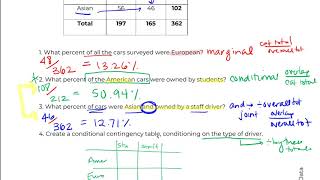 Asian 56 46 102
Total 197 165 362
1. What percent of all the cars surveyed were European? marginal cat total
overall tot
48/362 = 13.26%
2. What percent of the American cars were owned by students? conditional overlap
cat tot
108/212 = 50.94%
3. What percent of cars were Asian and owned by a staff driver? and → ÷ overall tot
46/362 = 12.71% joint overlap
overall tot
4. Create a conditional contingency table, conditioning on the type of driver.
Stu staff
Amer
Euro